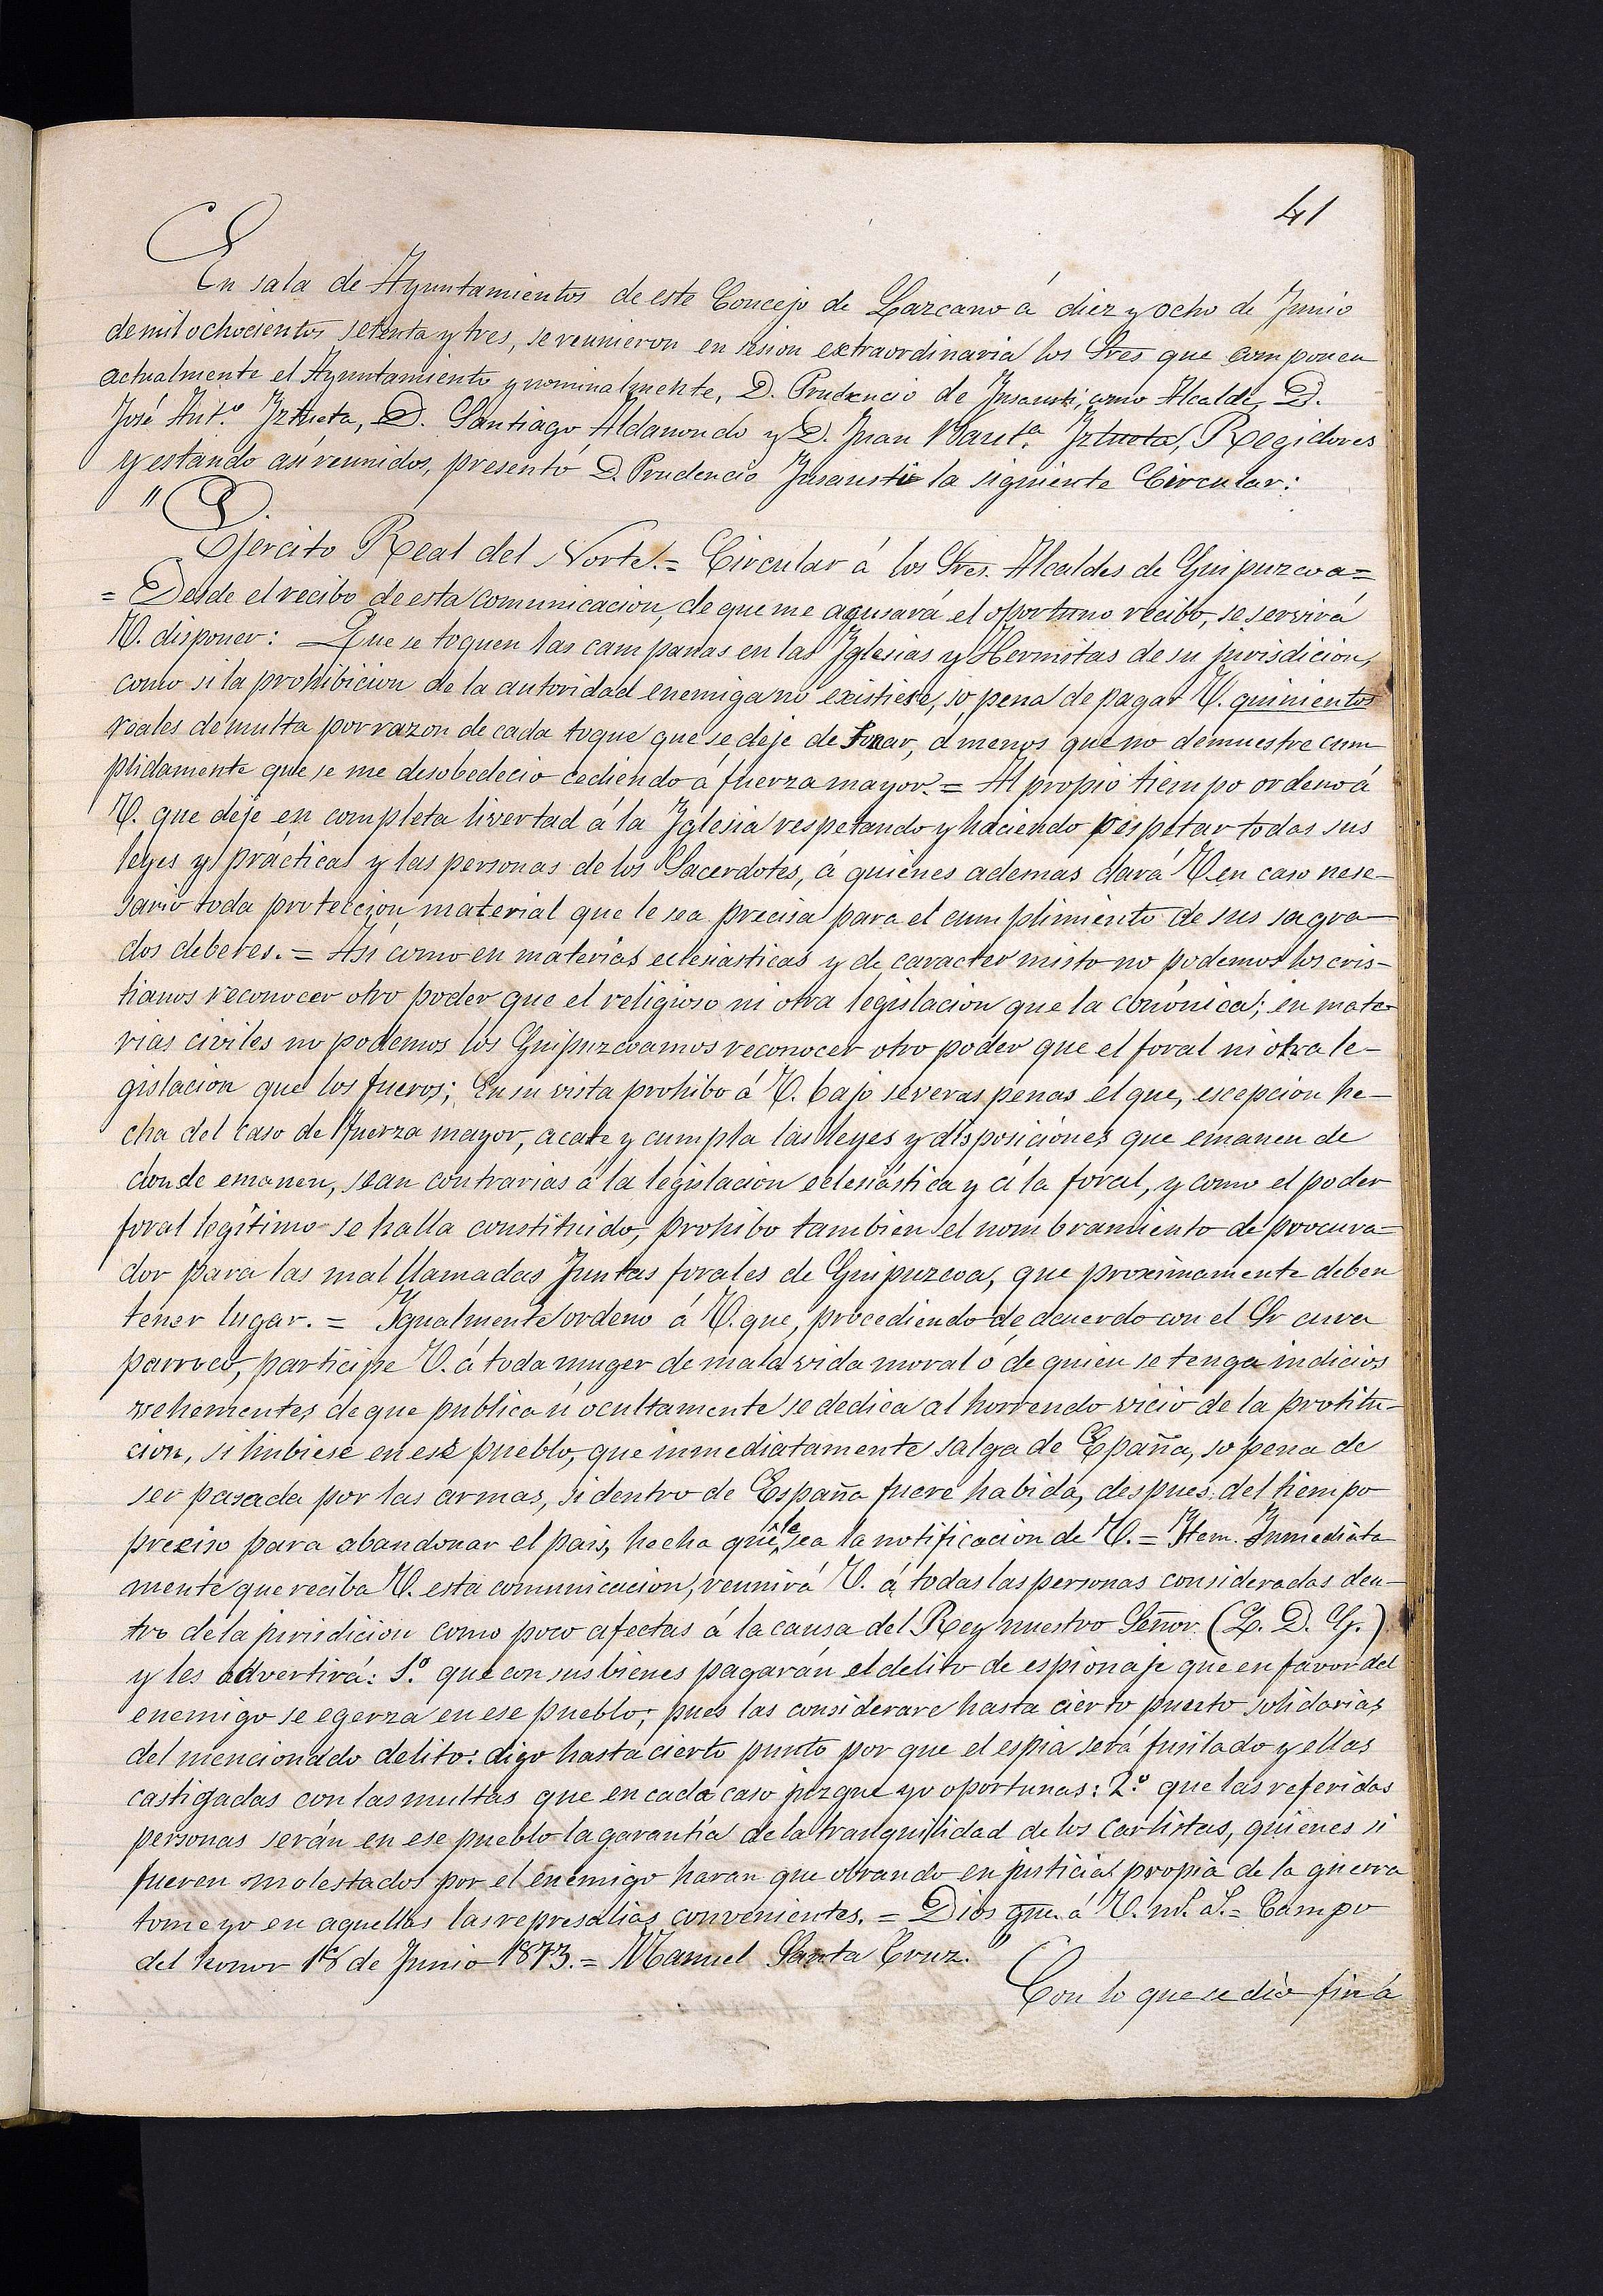 41
En sala de Ayuntamientos de este Concejo de Lazcano á diez y ocho de Junio
de mil ochocientos setenta y tres, se reunieron en sesion extraordinaria los Sres que componen
actualmente el Ayuntamiento y nominalmente, D. Prudencio de Insausti, como Alcalde, D.
José Ant.º Iztueta, D. Santiago Aldanondo y D. Juan Baut.ª Iztueta, Regidores
y estando asi reunidos, presentó D. Prudencio Insausti la siguiente Circular:
"Ejercito Real del Norte.= Circular á los Sres. Alcaldes de Guipuzcoa=
= Desde el recibo de esta comunicacion, de que me acusará el oportuno recibo, se servirá
V. disponer: Que se toquen las campanas en las Iglesias y Hermitas de su jurisdicion,
como si la prohibicion de la autoridad enemiga no existiese, so pena de pagar V. quinientos
reales de multa por razon de cada toque que se deje de tocar, á menos que no demuestre cum
plidamente que se me desobedeció cediendo á fuerza mayor.= Al propio tiempo ordeno á
V. que deje en completa livertad á la Iglesia respetando y haciendo respetar todas sus
leyes y prácticas y las personas de los Sacerdotes, á quienes ademas dará V. en caso nese-
sario toda proteccion material que le sea precisa para el cumplimiento de sus sagra-
dos deberes.= Asi como en materias eclesiasticas y de caracter misto no podemos los cris-
tianos reconocer otro poder que el religioso ni otra legislacion que la conónica; en mate-
rias civiles no podemos los Guipuzcoamos reconocer otro poder que el foral ni otra le-
gislacion que los fueros; En su vista prohibo á V. bajo severas penas el que, escepcion he-
cha del caso de fuerza mayor, acate y cumpla las leyes y disposiciones que emanen de
donde emanen, sean contrarias á la legislacion eclesiástica y á la foral, y como el poder
foral legítimo se halla constituido, prohibo tambien el nombramiento de procura-
dor para las mal llamadas Juntas forales de Guipuzcoa, que proximamente deben
tener lugar.= Igualmente ordeno á V. que, procediendo de acuerdo con el Sr cura
parroco, participe V. á toda muger de mala vida moral ó de quien se tenga indicios
vehementes de que publica ú ocultamente se dedica al horrendo vicio de la protitu-
cion, si hubiese en ese pueblo, que inmediatamente salga de Epaña, so pena de
ser pasada por las armas, si dentro de España fuere habida, despues del tiempo
preciso para abandonar el pais, hecha que le sea la notificacion de V.= Item. Inmediata
mente que reciba V. esta comunicacion, reunirá V. á todas las personas consideradas den-
tro de la jurisdicion como poco afectas á la causa del Rey nuestro Señor (Q. D. G.)
y les advertirá: 1.º que con sus bienes pagarán el delito de espionaje que en favor del
enemigo se egerza en ese pueblo; pues las considerare hasta cierto punto solidarias
del mencionado delito: digo hasta cierto punto por que el espia será fusilado y ellas
castigadas con las multas que en cada caso juzgue yo oportunas: 2.º que las referidas
personas serán en ese pueblo la garantía de la tranquilidad de los carlistas, quienes si
fueren molestados por el enemigo haran que obrando en justicia propia de la guerra
tome yo en aquellas las represalias convenientes.= Dios gue. á V. m.s a.s= Campo
del honor 18 de Junio 1873.= Manuel Santa Cruz."
Con lo que se dió fin á